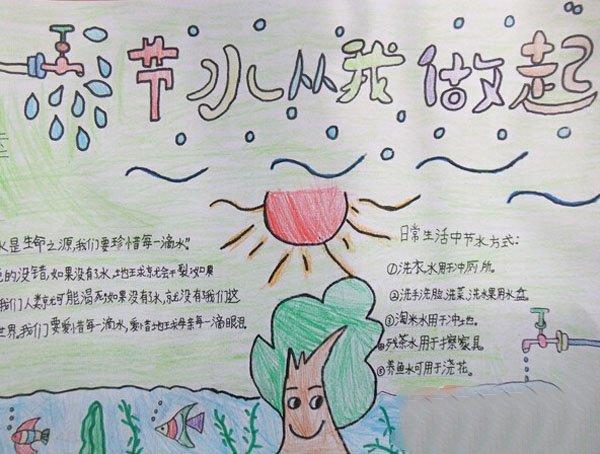 节水从我做起
水是生命之源,我们要珍惜每一滴水"
的没错,如果没有了水,地球就会干裂,如果
我们人类就可能渴死,如果没有了水,就没有我们这
世界。我们要爱惜每一滴水,爱惜地球母亲每一滴眼泪。
日常生活中节水方式:
①洗衣水用于冲厕所。
②洗手洗脸、洗菜、洗水果用水盆。
③淘米水用于冲地。
④残茶水用于擦家具。
⑤养鱼水可用于浇花。